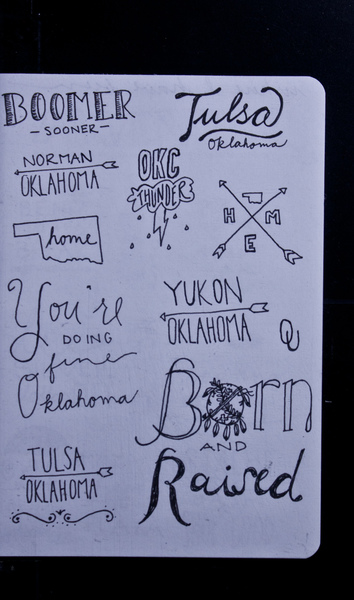 BOOMER
- SOONER -
Tulsa
Oklahoma
NORMAN
OKLAHOMA
OKC
THUNDER
H M
E
home
You're
DOING
fine
Oklahoma
YUKON
OKLAHOMA
OU
Born
AND
Raised
TULSA
OKLAHOMA